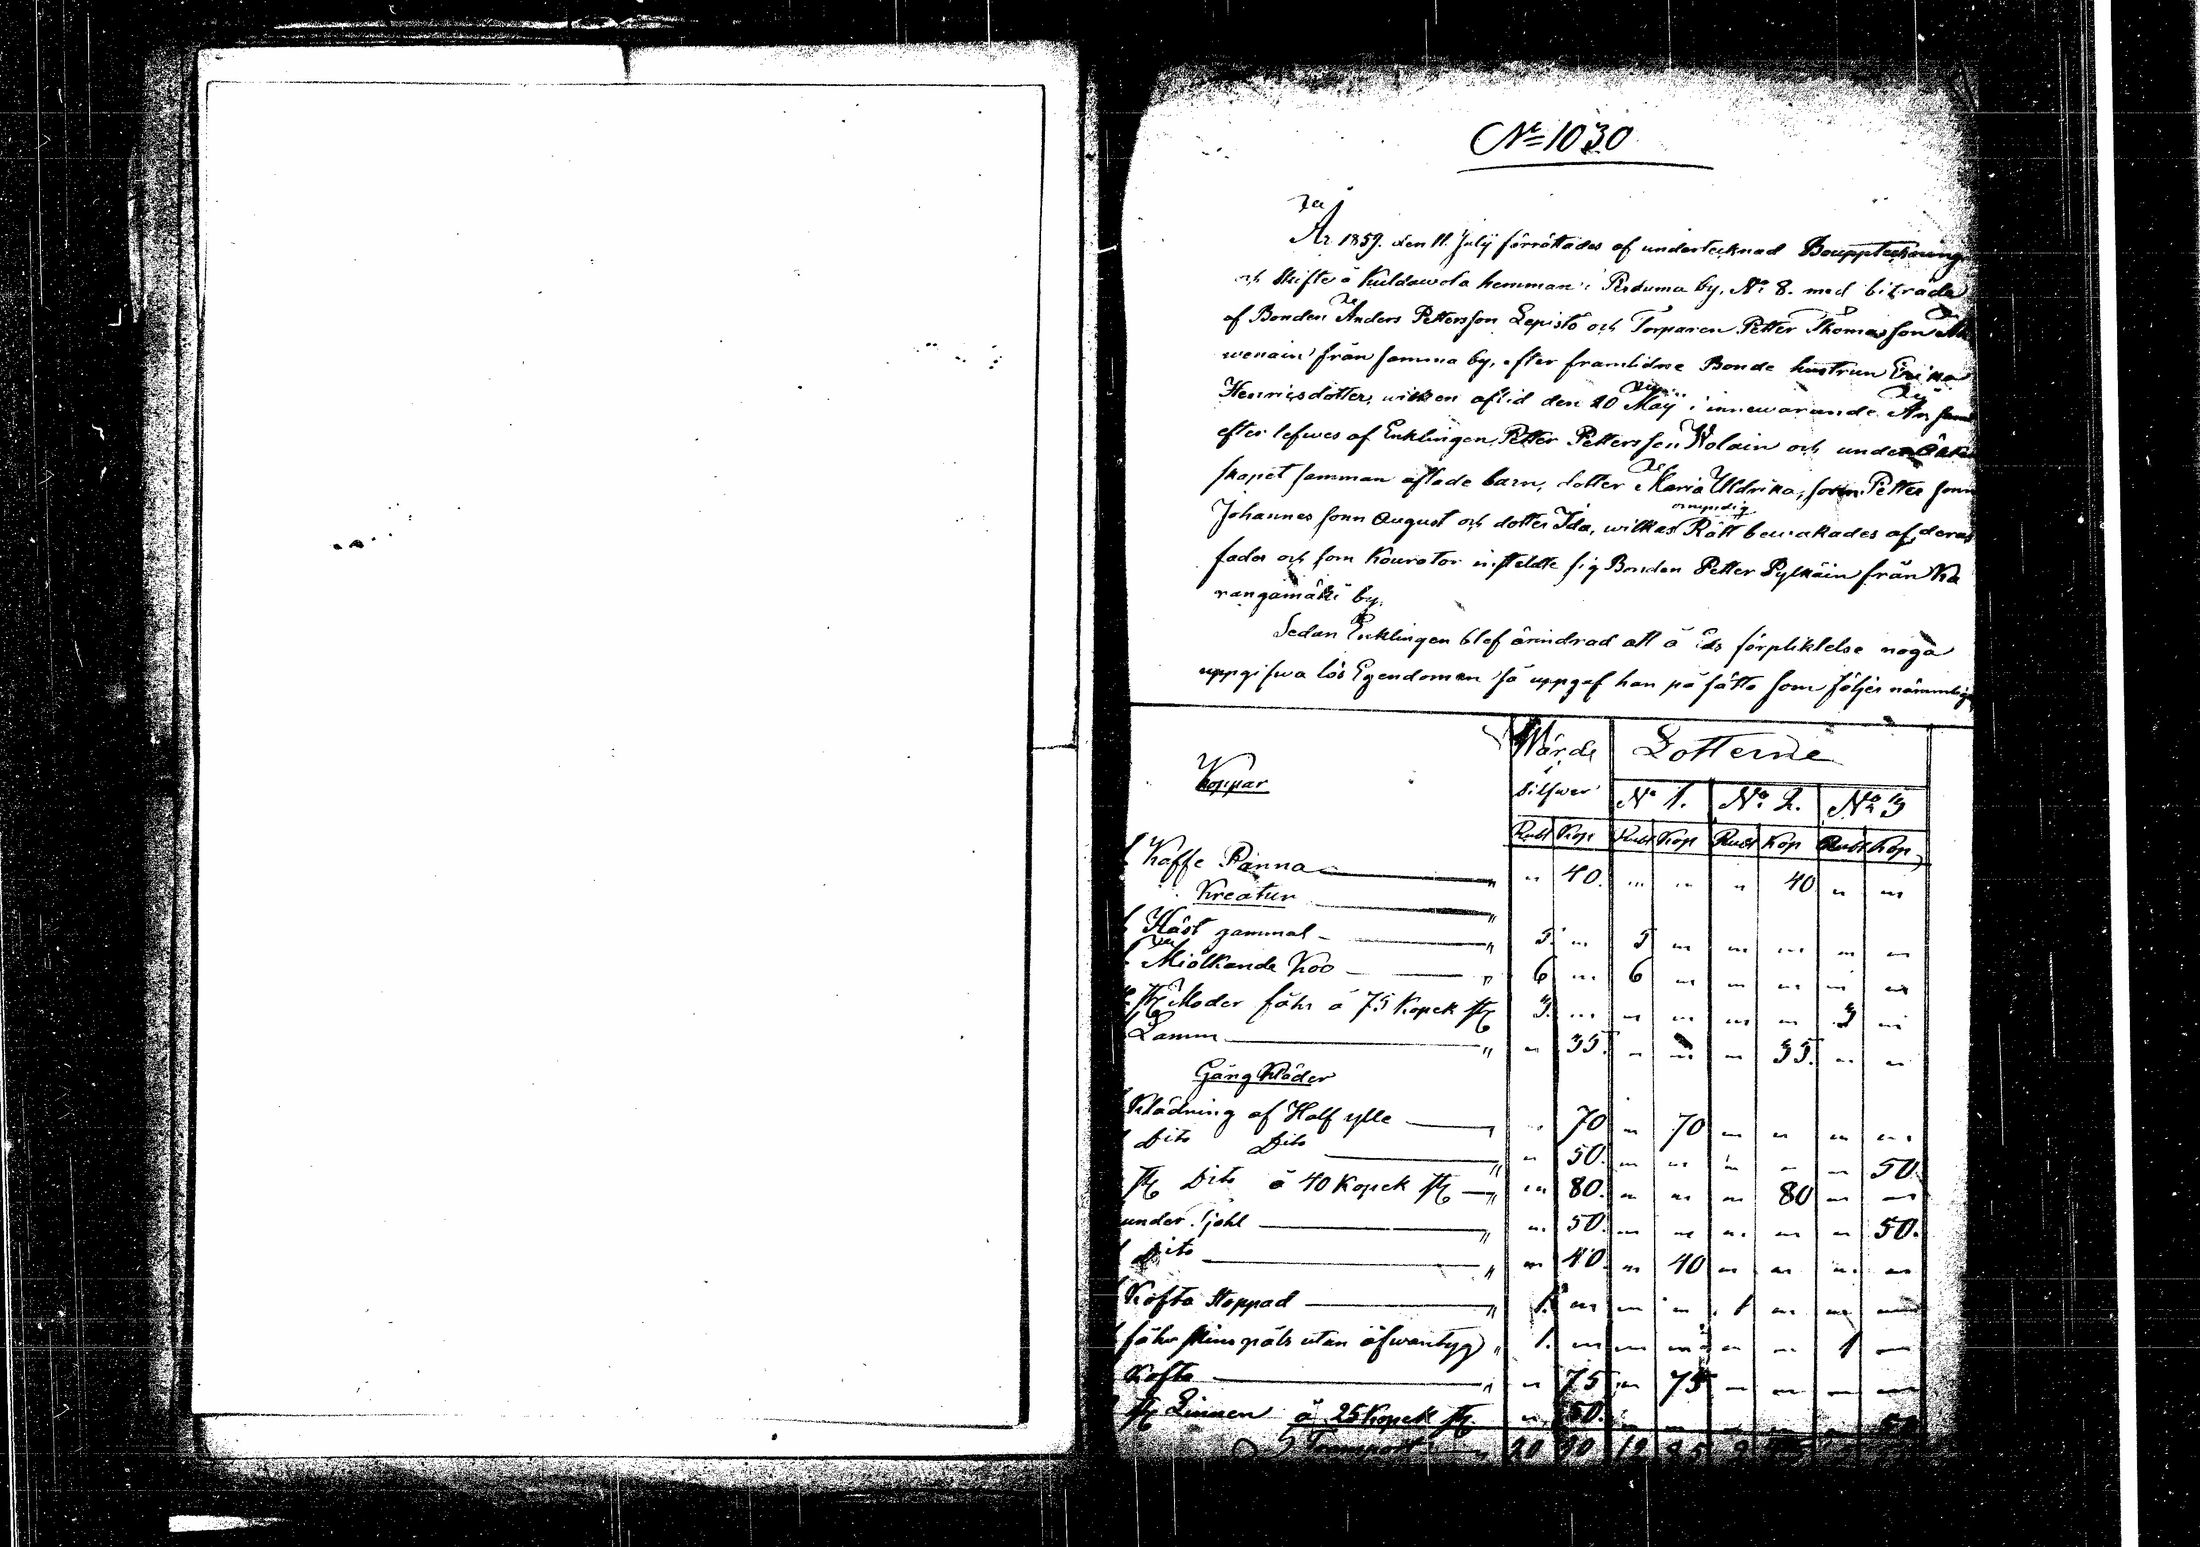 No 1030
År 1859. den 11. Julÿ förrättades af undertecknad Bouppteckning
och skifte å Kuldawola hemman i Perduma by, No 8. med biträde
af Bonden Anders Pettersson Lepistö och Torparen Petter Thomasson
wenain från samma by, efter framlidne Bonde hustrun Erika
Henricsdotter, wilken aflid den 20 Maÿ i innewarande År som
efter lefwes af Enklingen Petter Pettersson Wolain och under Äkta
skapet samman aflade barn, dotter Maria Uldrika, sonn Petter sonn
Johannes sonn August och dotter Ida, wilkas omyndig Rätt bewakades af deras
fader och som Kourator instälde sig Bonden Petter Pylkäin från Ka
rangamäki by.
Sedan Enklingen blef ärindrad att å Eds förpliktelse noga
uppgifwa lös Egendomen så uppgaf han på sätta som följer nämmligen
Koppar Wärde i Silfwer Lotterne
No 1. No 2. No 3
Rubl Kop Rubl Kop Rubl Kop Rubl Kop
1 Kaffe Panna " 40. " " " 40 " "
Kreatur
1 Häst gammal 5. " 5 " " " " "
1 Miölkande Koo 6 " 6 " " " " "
st Moder fåhr á 75 Kopek st 3. " " " " " 3 "
Lamm " 35. " " " 35. " "
Gång Kläder
Klädning af Half ylle " 70 " 70 " " " "
1 Dito Dito " 50. " " " " " 50.
st Dito á 40 Kopek st " 80. " " " 80 " "
under kjohl " 50. " " " " " 50.
1 Dito " 40. " 40 " " " "
1 Kofta stoppad 1. " " " 1 " " "
1 fåhr skins päls utan öfwantyg 1. " " " " " 1 "
Kofta " 75 " 75 " " " "
st Linnen á 25 Kopek st. " 50. " " " " " 50
Transport 20 90 12 85 2